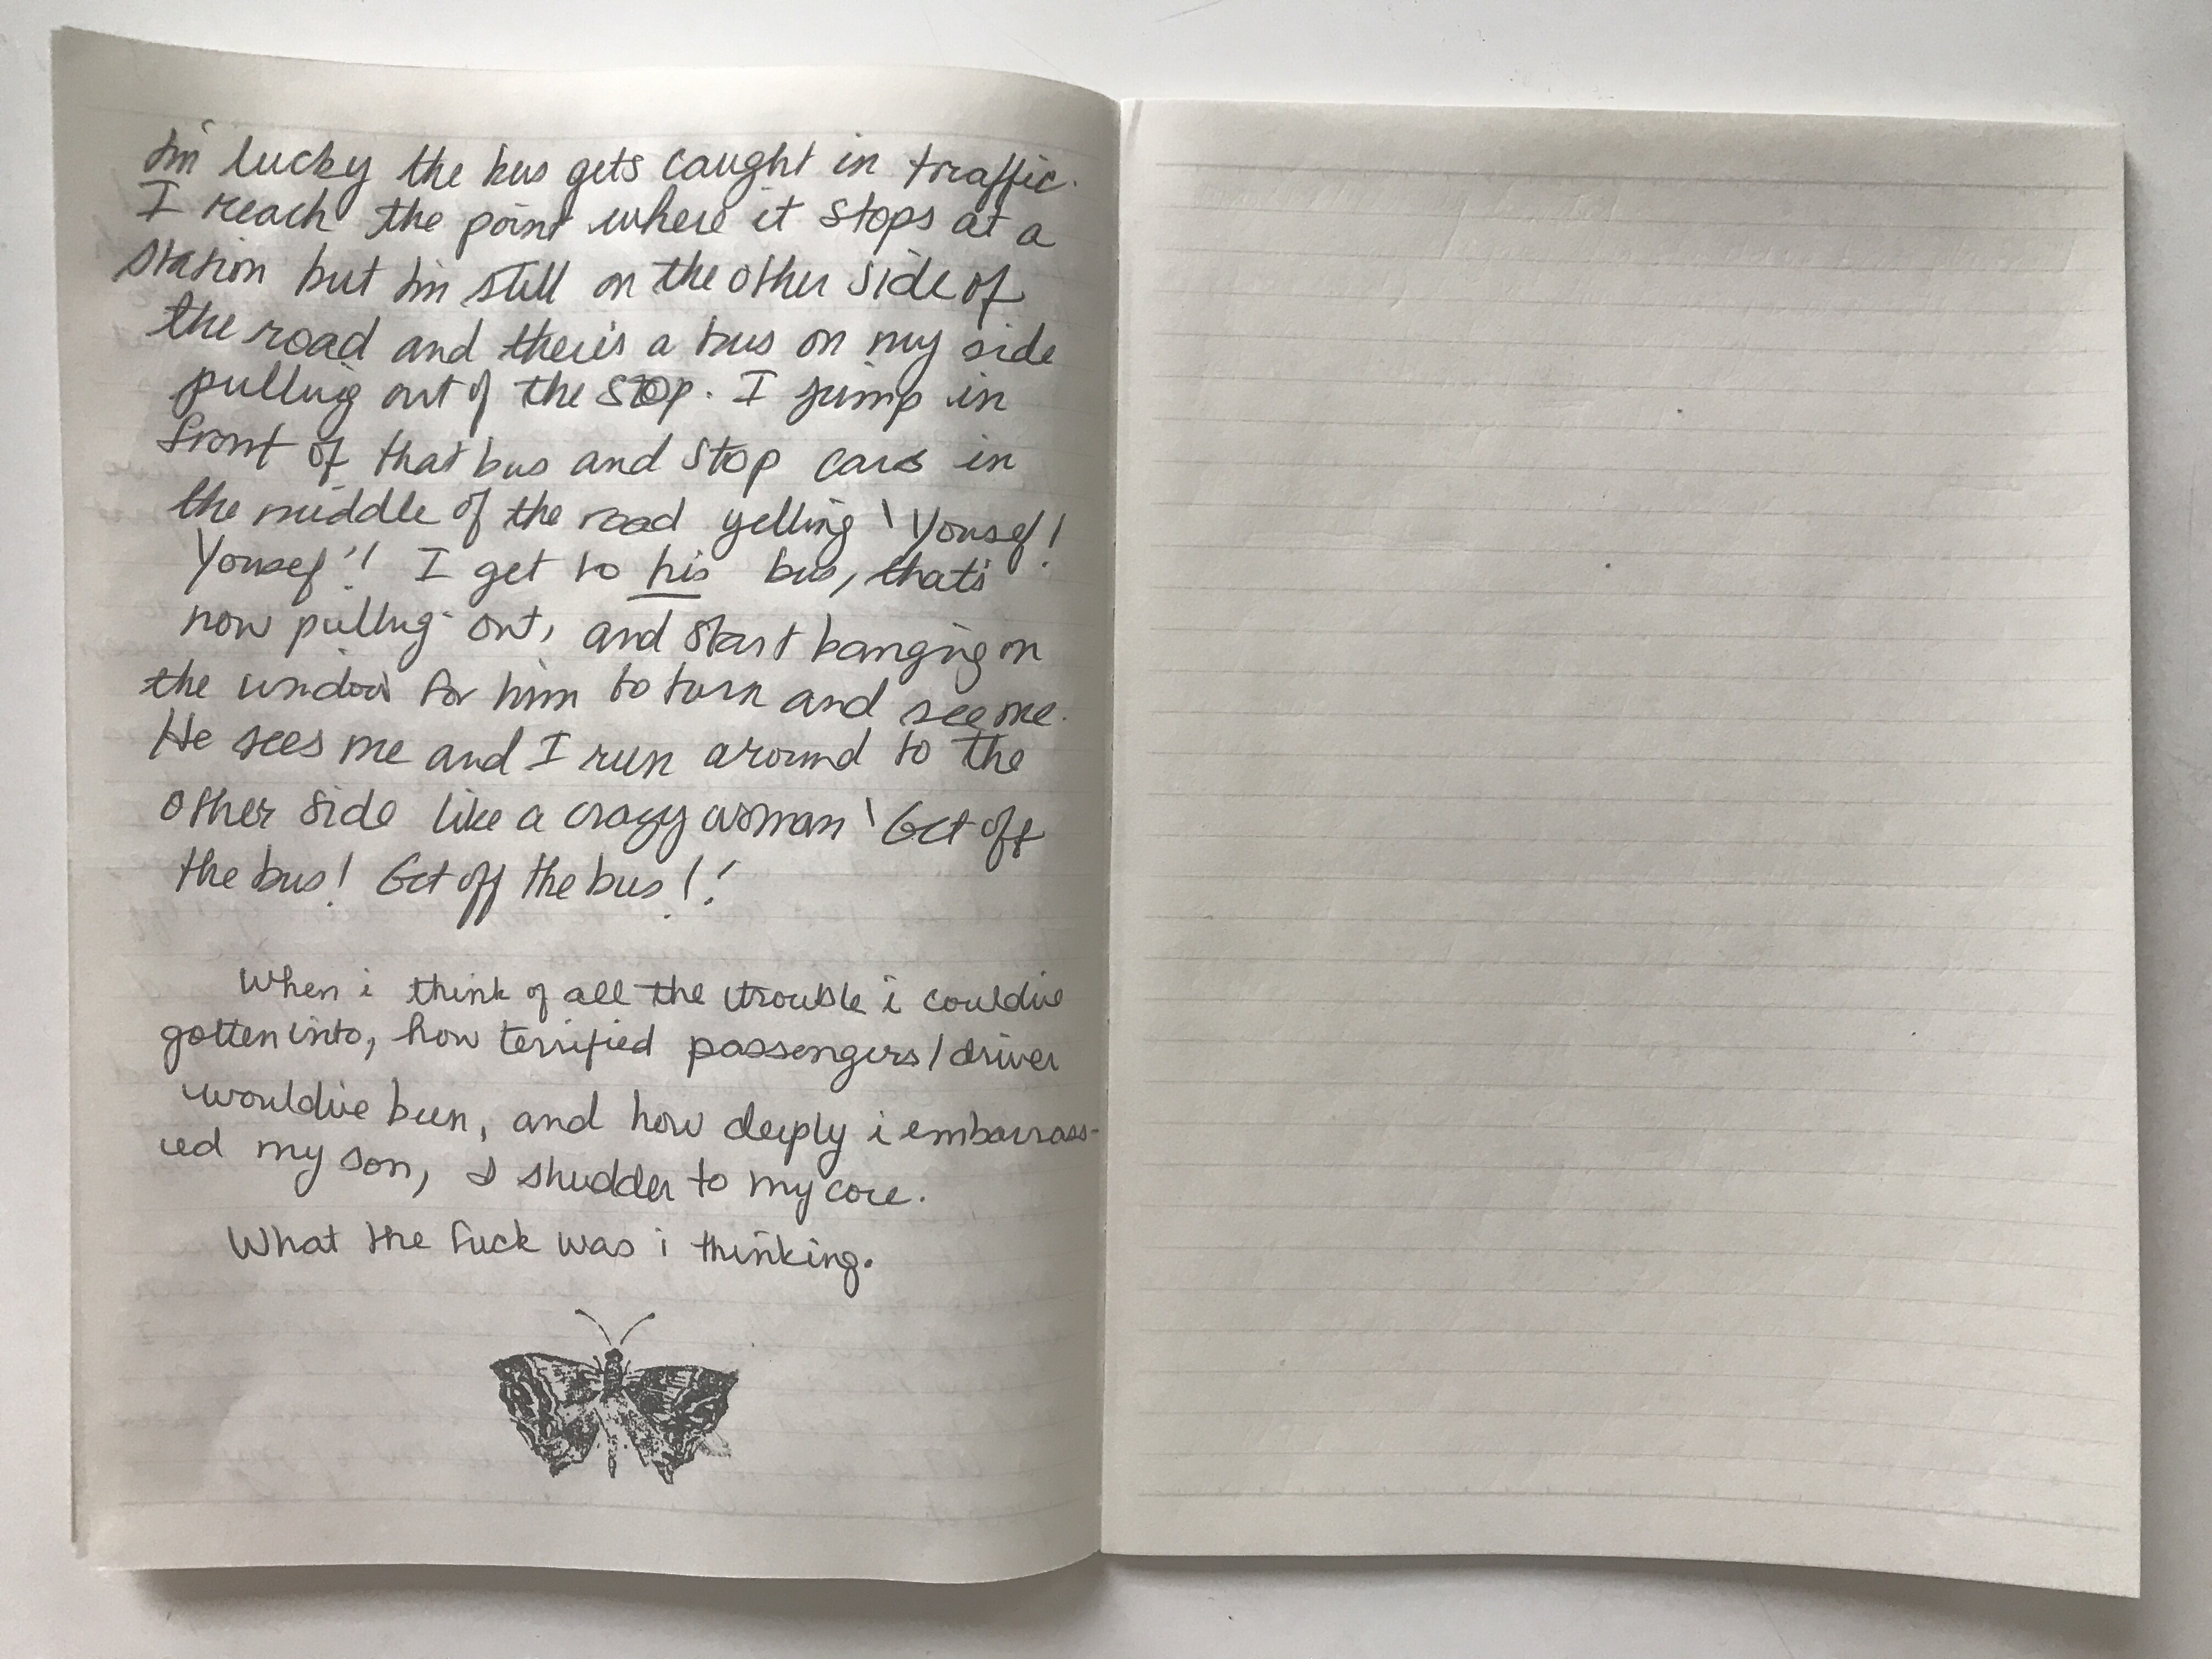 I'm lucky the bus gets caught in traffic.
I reach the point where it stops at a
station but I'm still on the other side of
the road and there's a bus on my side
pulling out of the stop. I jump in
front of that bus and stop cars in
the middle of the road yelling 'Yousef!
Yousef'! I get to his bus, that's
now pulling out, and start banging on
the window for him to turn and see me.
He sees me and I run around to the
other side like a crazy woman 'Get off
the bus! Get off the bus!!
When i think of all the trouble i could've
gotten into, how terrified passengers/driver
would've been, and how deeply i embarrass-
ed my son, I shudder to my core.
What the fuck was i thinking.